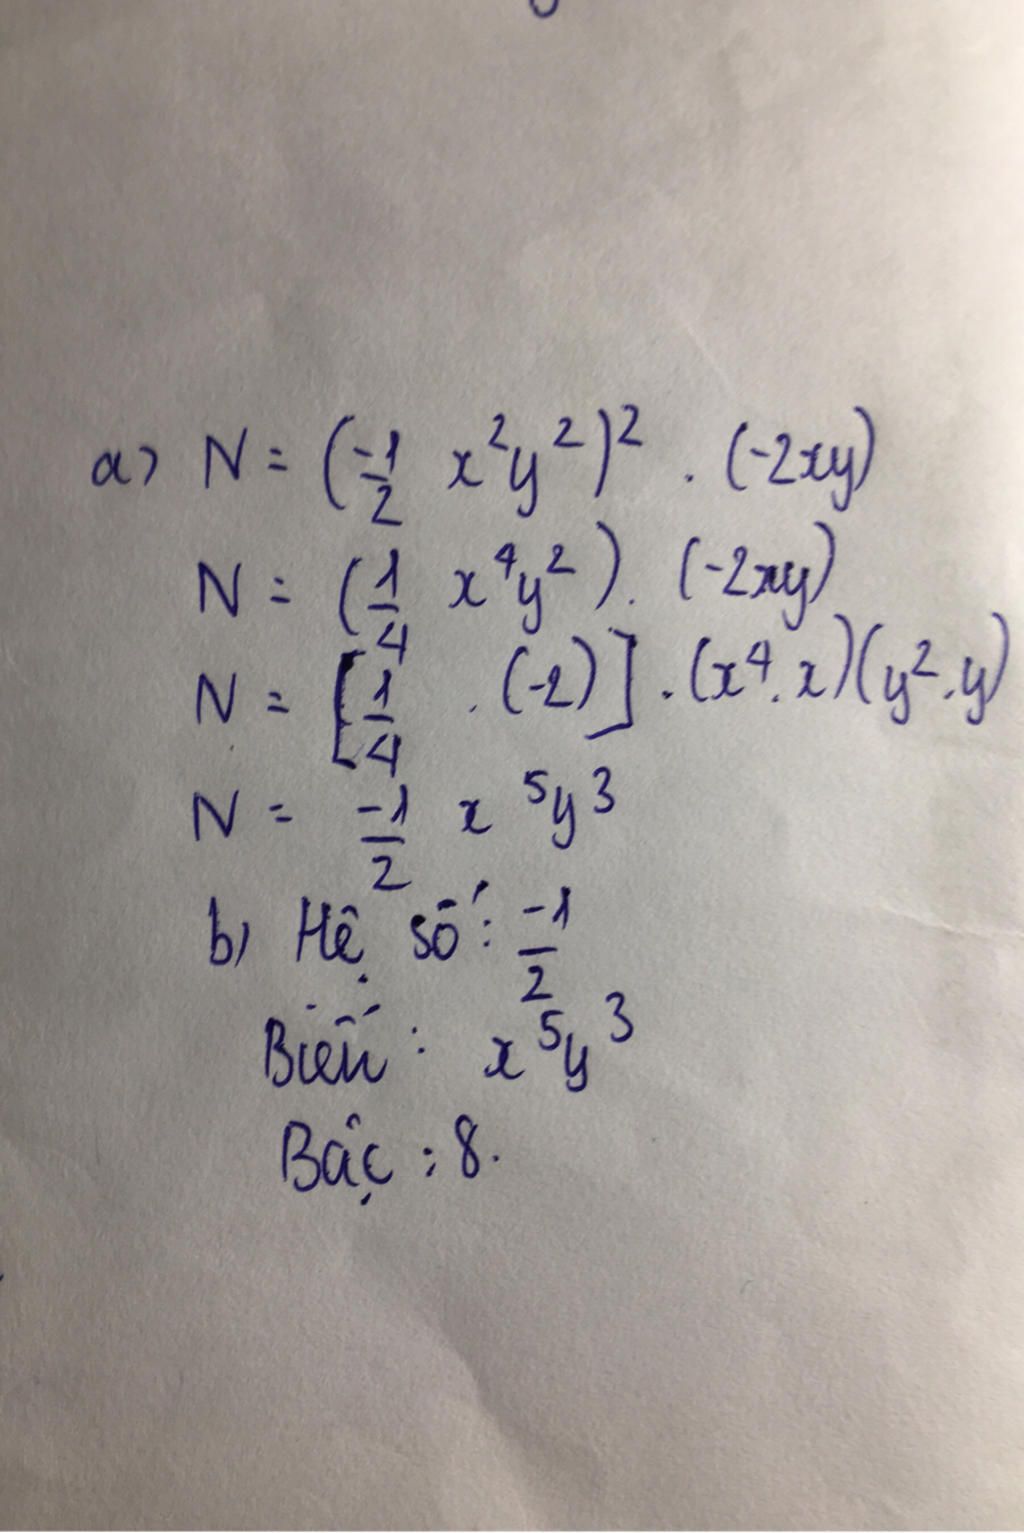 a) N = (-1/2 x²y²)² . (-2xy)
N = (1/4 x⁴y²) . (-2xy)
N = [1/4 . (-2)] . (x⁴.x)(y².y)
N = -1/2 x⁵y³
b) Hệ số: -1/2
Biến: x⁵y³
Bậc: 8.